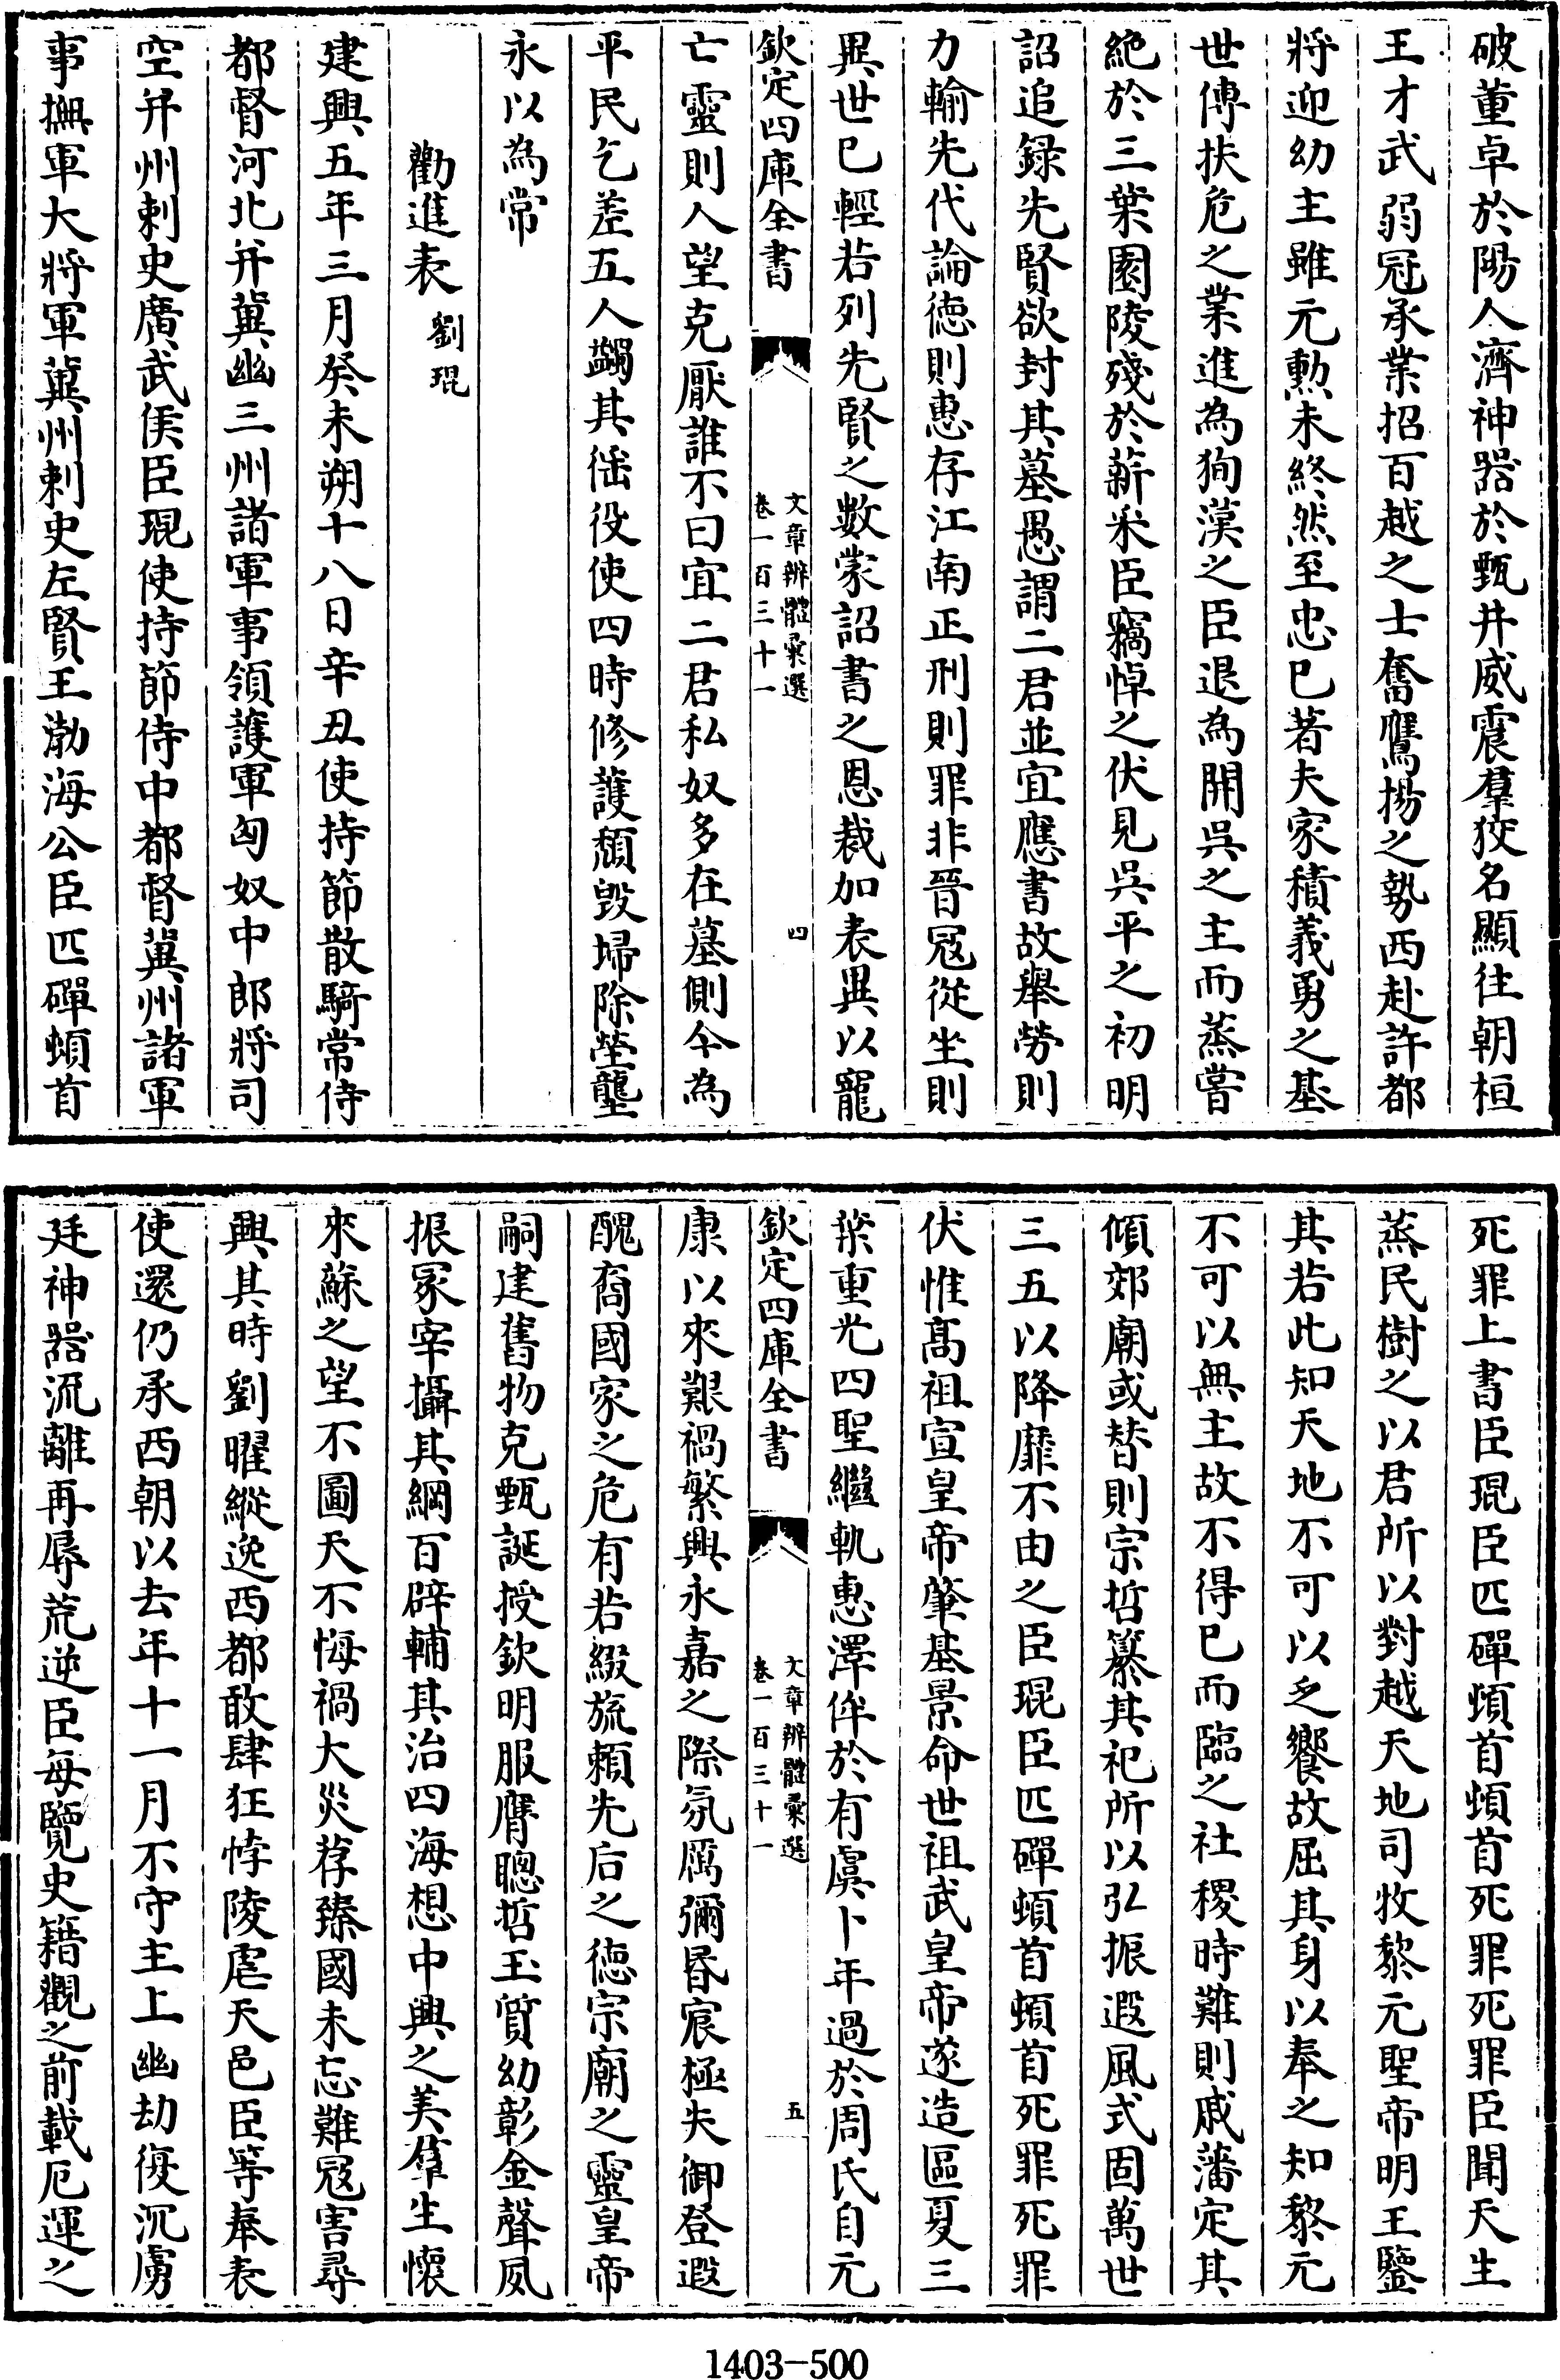 破董卓於陽人濟神器於甄井威震羣狡名顯往朝桓
王才武弱冠承業招百越之士奮鷹揚之勢西赴許都
將迎幼主雖元勲未終然至忠已著夫家積義勇之基
世傳扶危之業進為狥漢之臣退為開吳之主而蒸嘗
絶於三葉園陵殘於薪采臣竊悼之伏見吳平之初明
詔追録先賢欲封其墓愚謂二君並宜應書故舉勞則
力輸先代論德則惠存江南正刑則罪非晉冦從坐則
異世已輕若列先賢之數蒙詔書之恩裁加表異以寵
欽定四庫全書
文章辨體彚選
卷一百三十一
四
亡靈則人望克厭誰不曰宜二君私奴多在墓側今為
平民乞差五人蠲其徭役使四時修護頽毀埽除塋壟
永以為常
勸進表 劉琨
建興五年三月癸未朔十八日辛丑使持節散騎常侍
都督河北并冀幽三州諸軍事領護軍匈奴中郎將司
空并州刺史廣武侯臣琨使持節侍中都督冀州諸軍
事撫軍大將軍冀州刺史左賢王渤海公臣匹磾頓首
死罪上書臣琨臣匹磾頓首頓首死罪死罪臣聞天生
蒸民樹之以君所以對越天地司牧黎元聖帝明王鑒
其若此知天地不可以乏饗故屈其身以奉之知黎元
不可以無主故不得已而臨之社稷時難則戚藩定其
傾郊廟或替則宗哲纂其祀所以弘振遐風式固萬世
三五以降靡不由之臣琨臣匹磾頓首頓首死罪死罪
伏惟髙祖宣皇帝肇基景命世祖武皇帝遂造區夏三
葉重光四聖繼軌惠澤侔於有虞卜年過於周氏自元
欽定四庫全書
文章辨體彚選
卷一百三十一
五
康以來艱禍繁興永嘉之際氛厲彌昬宸極失御登遐
醜裔國家之危有若綴旒賴先后之德宗廟之靈皇帝
嗣建舊物克甄誕授欽明服膺聰哲玉質幼彰金聲夙
振冢宰攝其綱百辟輔其治四海想中興之美羣生懷
來蘇之望不圖天不悔禍大災荐臻國未忘難冦害尋
興其時劉曜縱逸西都敢肆狂悖陵虐天邑臣等奉表
使還仍承西朝以去年十一月不守主上幽劫復沉虜
廷神器流離再辱荒逆臣每覽史籍觀之前載厄運之
1403-500